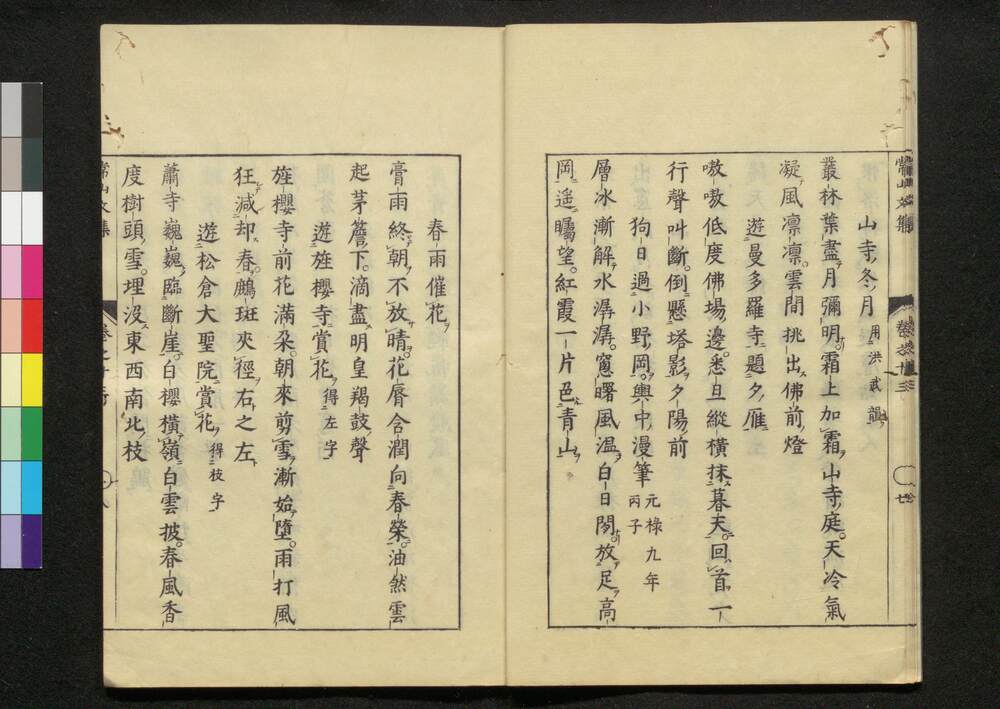 山寺冬月 用洪武韻
叢林葉盡月彌明霜上加霜山寺庭天冷氣
凝風凛凛雲間挑出佛前燈
遊曼多羅寺題夕雁
嗷嗷低度佛場邊悉旦縱橫抹暮天回首一
行聲叫斷倒懸塔影夕陽前
狗日過小野岡輿中漫筆 元祿九年丙子
層冰漸解水潺潺窻曙風溫白日閑放足高
岡遙矚望紅霞一片邑青山
春雨催花
膏雨終朝不放晴花唇含潤向春榮油然雲
起茅簷下滴盡明皇羯鼓聲
遊旌櫻寺賞花 得左字
旌櫻寺前花滿朶朝來剪雪漸始墮雨打風
狂減却春鷓斑夾徑石之左
遊松倉大聖院賞花 得枝字
蕭寺巍巍臨斷崖白櫻橫嶺白雲披春風香
度樹頭雪埋沒東西南北枝
常山文集